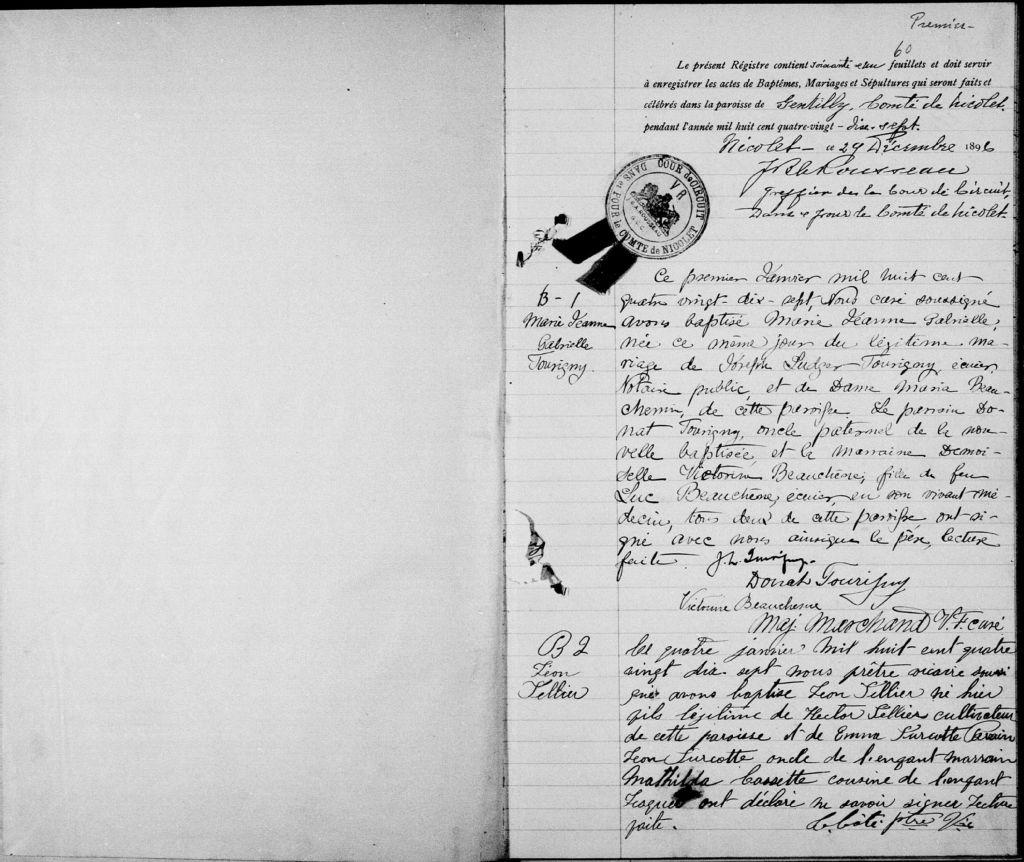 Premier
60
Le présent Régistre contient soixante feuillets et doit servir
à enregistrer les actes de Baptêmes, Mariages et Sépultures qui seront faits et
célébrés dans la paroisse de Gentilly, Comté de Nicolet.
pendant l'année mil huit cent quatre-vingt-dix-sept.
Nicolet - ce 29 Décembre 1896
Rousseau
greffier de la Cour de Circuit,
Dans & pour le Comté de Nicolet.
COUR de CIRCUIT DANS et POUR le COMTÉ de NICOLET
VR
B-1
Marie Jéanne
Gabrielle
Tourigny.
Ce premier Jánvier mil huit cent
quatre vingt dix-sept, Nous curé soussigné
avons baptisé Marie Jéanne Gabrielle,
née ce même jour du légitime ma-
riage de Jóseph Ludger Tourigny, écuier,
Notaire public, et de Dame Maria Beau-
chemin, de cette paroisse. Le parrain Do-
nat Tourigny, oncle paternel de la nou-
velle baptisée, et la marraine Demoi-
selle Victorine Beauchêne, fille de feu
Luc Beauchêne, écuier, en son vivant mé-
decin, tous deux de cette paroisse ont si-
gné avec nous ainsique le père, lecture
faite. J. L. Tourigny.
Donat Tourigny
Victorine Beauchesne
Marchand V.F. curé
B 2
Léon
Tellier
Le quatre janvier mil huit cent quatre
vingt dix sept nous prêtre vicaire soussi
gné avons baptisé Léon Tellier né hier
fils légitime de Hector Tellier cultivateur
de cette paroisse et de Emma Turcotte Parrain
Léon Turcotte oncle de l'enfant marraine
Mathilda Cossette cousine de l'enfant
Lesquels ont déclaré ne savoir signer Lecture
faite. ptre Vic